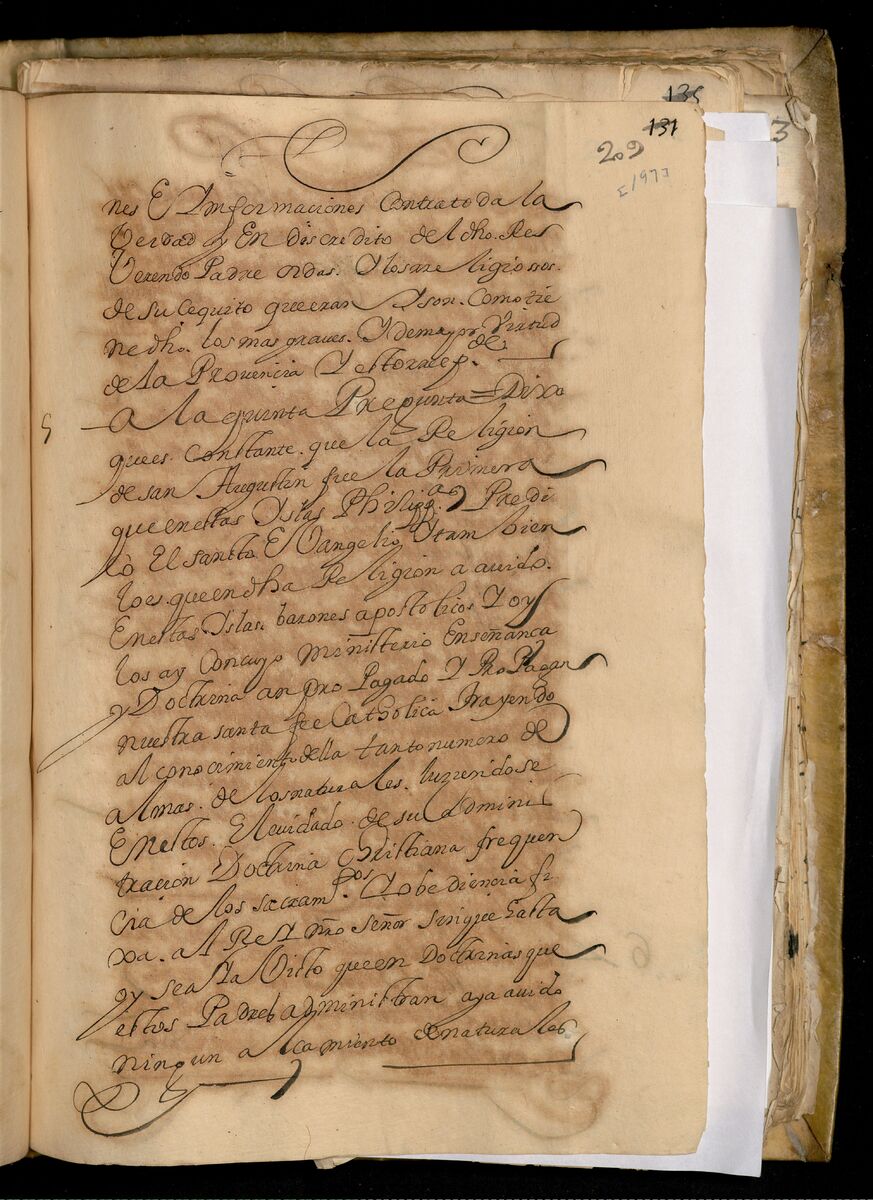 135
131
209
[1697]
3
nes E Ynformaciones Contra toda la
Verdad y En discredito del dho. Re
Verendo Padre ordas. Y los religiossos.
de su cequito que eran Y son. Como tie
ne dho. los mas graves. Y de mayor Virtud
de la Provencia Y esto resp.de
5 A la quinta Pregunta = Dixo
que es. Constante. que la Religion
de san Augustin fue la Primera
que en estas Yslas Philipp.as Predi
cò El sancto EVangelio, Y tambien
lo es. que en dha Religion a avido.
En estas Yslas. barones apostolicos Y oy
los ay Con cuyo ministerio Enseñanca
y Doctrina an Pro Pagado Y Pro Pagan
nuestra santa fee Catholica trayendo
al conocimiento della tanto numero de
almas. de los naturales. luziendose
En estos. El cuidado. de su Admini
tracion Doctrina Christiana frequen
cia de los sacram.tos Y obediencia fi
xa. al Rey nro señor sin que hasta
oy se aya Visto que en Doctrinas que
estos Padres administran aya avido
ningun alcamiento de naturales.